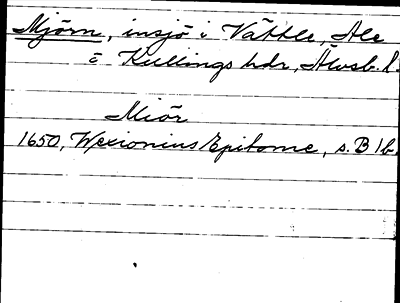 Mjörn, insjö i Vättle, Ale
& Kullings hdr, Älvsb. l.
Miör
1650, Wexionius Epitome, s. B 1b.